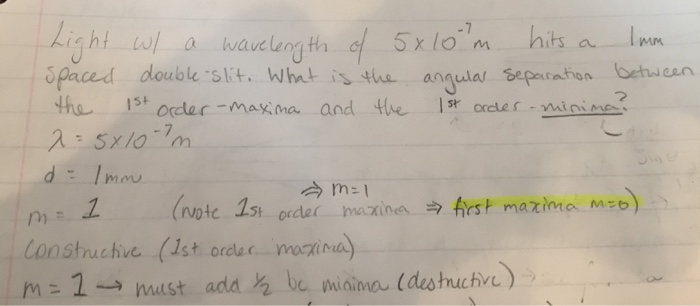 Light w/ a wavelength of 5x10⁻⁷m hits a 1mm
spaced double-slit. What is the angular separation between
the 1st order-maxima and the 1st order-minima?
λ = 5x10⁻⁷m
d = 1mm
⇒ m=1
m = 1 (note 1st order maxima ⇒ first maxima m=0)
Constructive (1st order maxima)
m = 1 → must add ½ bc minima (destructive)